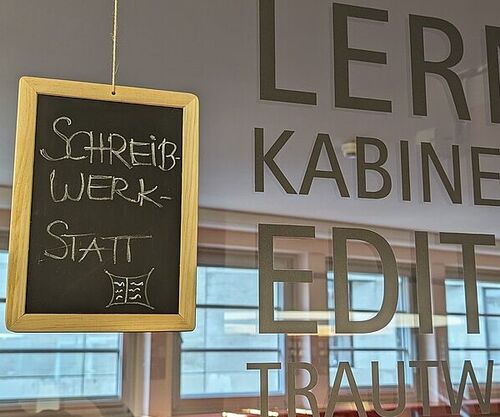 SCHREIB-
WERK-
STATT
LERN
KABINE
EDIT
TRAUTW